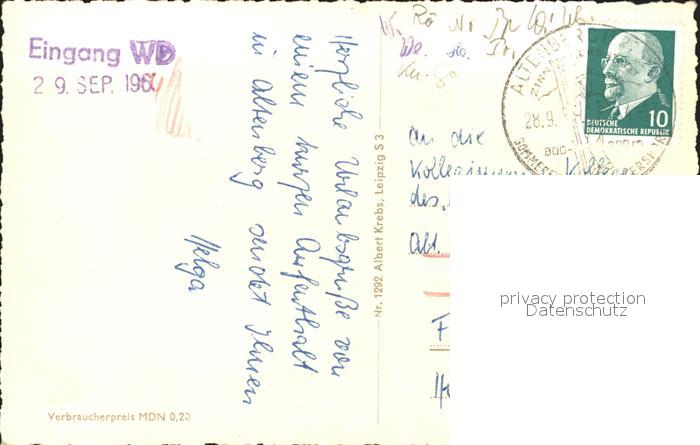 Eingang WD
29. SEP. 196
Herzliche Urlaubsgrüße von
einem kurzen Aufenthalt
in Altenberg sendet Ihnen
Helga
Verbraucherpreis MDN 0,20
Nr. 1292 Albert Krebs, Leipzig S 3
ALTENBERG
28.9.
800-
SOMMER
DEUTSCHE
DEMOKRATISCHE REPUBLIK
10
An die
Kolleginnen, Kollegen
des
Abt.
privacy protection
Datenschutz